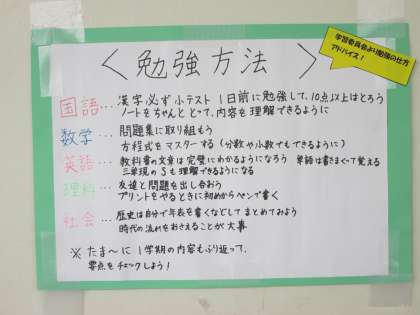 学習委員会より勉強の仕方
アドバイス！
＜勉強方法＞
国語…漢字必ず小テスト1日前に勉強して、10点以上はとろう
ノートをちゃんととって、内容を理解できるように
数学…問題集に取り組もう
方程式をマスターする(分数や小数でもできるように)
英語…教科書の文章は完璧にわかるようになろう 単語は書きまくって覚える
三単現のSも理解できるようになる
理科…友達と問題を出し合おう
プリントをやるときに初めからペンで書く
社会…歴史は自分で年表を書くなどしてまとめてみよう
時代の流れをおさえることが大事
※たま～に1学期の内容もふり返って、
要点をチェックしよう！